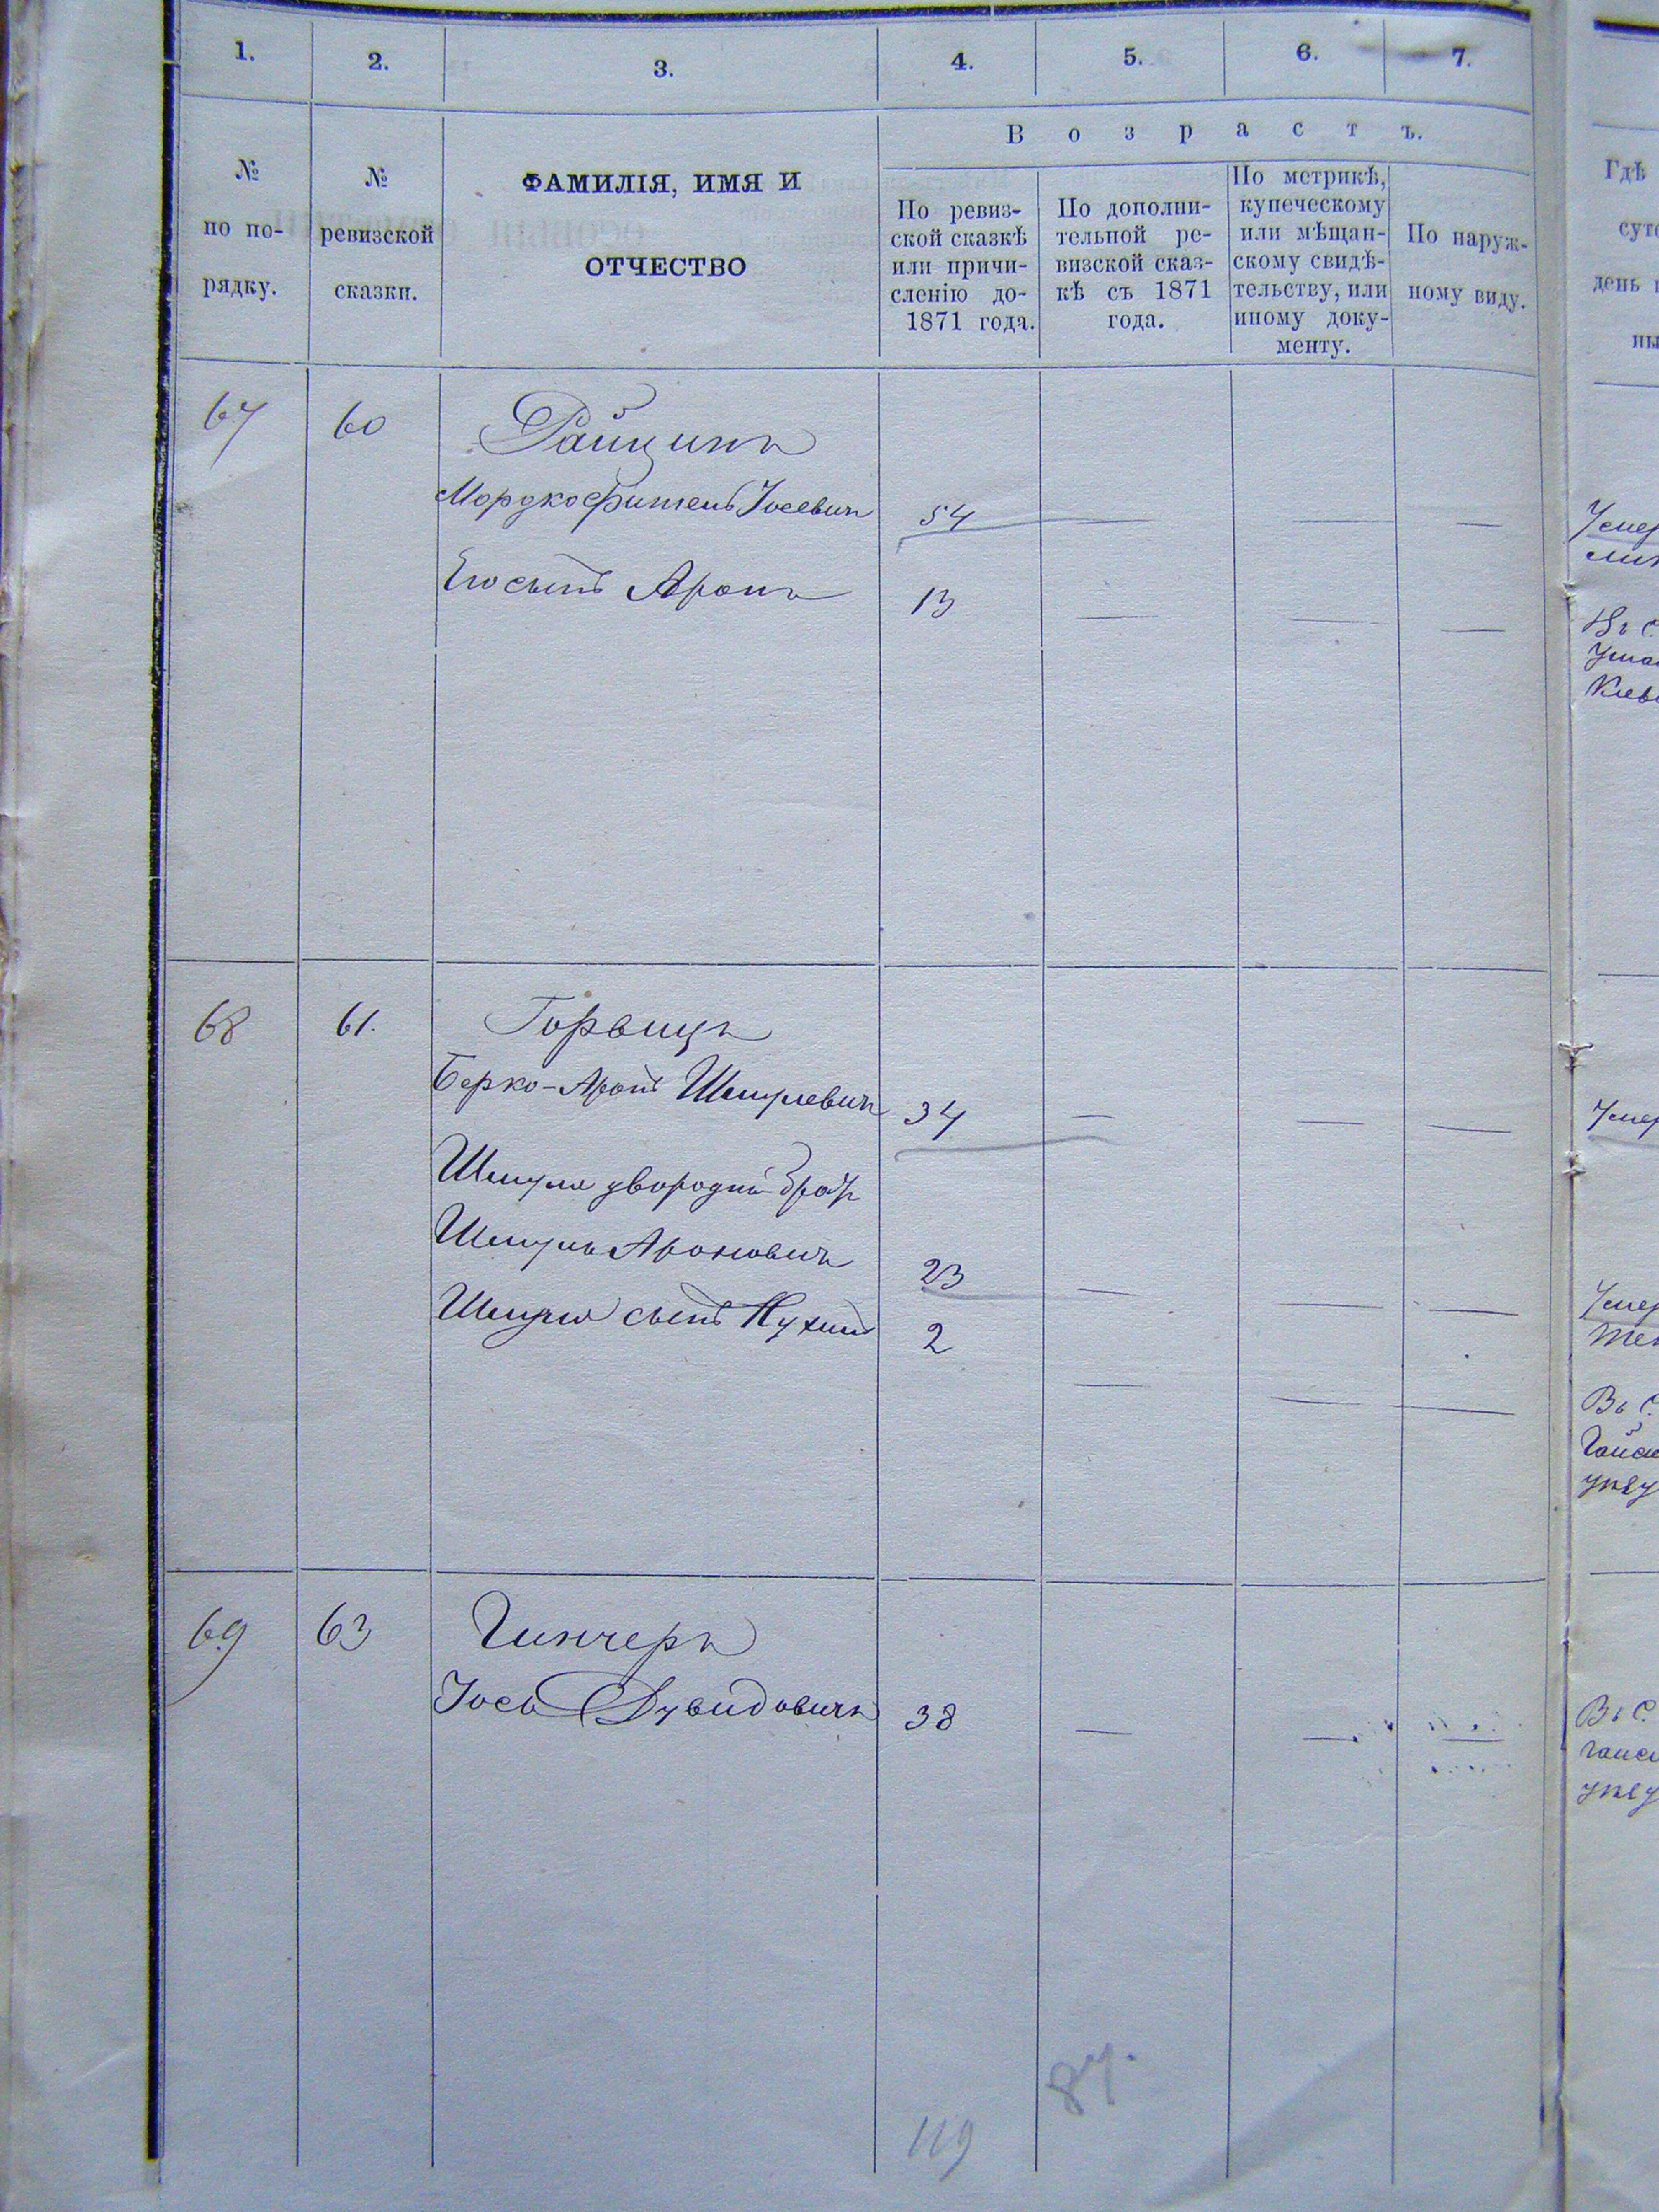 1. 2. 3. 4. 5. 6. 7.
№ по по-рядку.
№ ревизской сказки.
ФАМИЛІЯ, ИМЯ И
ОТЧЕСТВО
Возрастъ.
По ревиз-
ской сказкѣ
или причи-
сленію до-
1871 года.
По дополни-
тельной ре-
визской сказ-
кѣ съ 1871
года.
По метрикѣ,
купеческому
или мѣщан-
скому свидѣ-
тельству, или
иному доку-
менту.
По наруж-
ному виду.
Гдѣ
день
67 60 Райцинъ
Мордко Іосевичъ 54 — — —
Его сынъ Аронъ 13 — — —
68 61. Горвицъ
Берко-Аронъ Шмулевичъ 34 — — —
Шмуля двородный братъ
Шмуль Ароновичъ 23 — — —
Шмуля сынъ Нухимъ 2 — — —
69 63 Гинчеръ
Іось Дувидовичъ 38 — — —
Умер
Въ С.
Умер
Умер
Въ С.
Гайси
уѣзд
Въ С.
гайси
уѣзд
87.
119